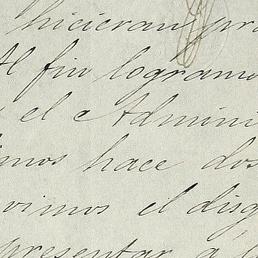 hicieran pr
Al fin logramo
el Admini
imos hace dos
vimos el disg
presentar á l